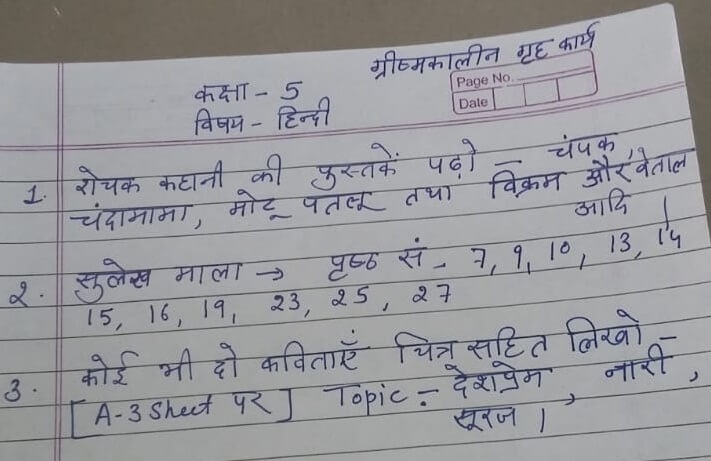 ग्रीष्मकालीन गृह कार्य
Page No.
Date
कक्षा - 5
विषय - हिन्दी
1. रोचक कहानी की पुस्तकें पढ़ो - चंपक,
चंदामामा, मोटू पतलू तथा विक्रम और वेताल
आदि।
2. सुलेख माला → पृष्ठ सं - 7, 9, 10, 13, 14
15, 16, 19, 23, 25, 27
3. कोई भी दो कविताएँ चित्र सहित लिखो -
[A-3 Sheet पर] Topic :- देशप्रेम, नारी,
सूरज।